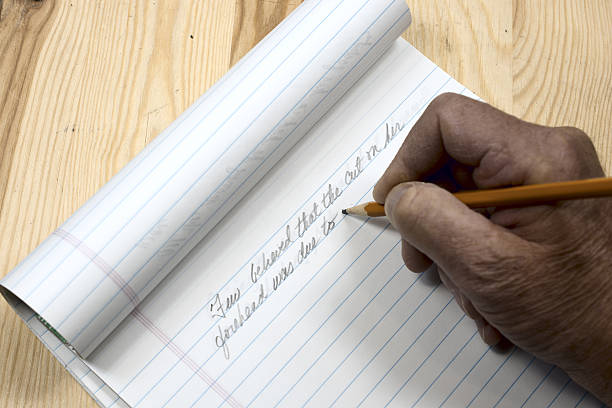 Few believed that the cut on her
forehead was due to